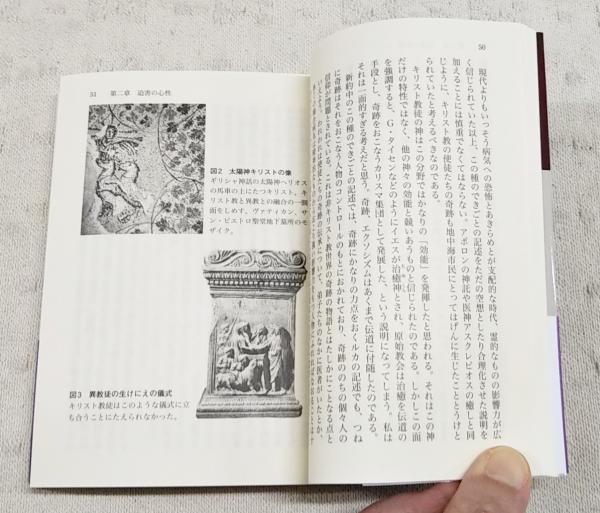 50
現代よりもいっそう病気への恐怖とあきらめとが支配的な時代、霊的なものの影響力が広
く信じられていた以上、この種のできごとの記述をただの空想としたり合理化させた説明を
加えることには慎重でなくてはならない。アポロンの神託や医神アスクレピオスの癒しと同
じように、キリスト教の使徒たちの奇跡も地中海市民にとってはげんに生じたこととうけと
られていたと考えるべきなのである。
キリスト教徒の神はこの分野ではかなりの「効能」を発揮したと思われる。それはこの神
だけの特性ではなく、他の神々の効能と競いあうものと信じられたのである。しかしこの面
を強調すると、G・タイセンなどのようにイエスが治癒神とされ、原始教会は治癒を伝道の
手段とし、奇跡をおこなうカリスマ集団として発展した、という説明になってしまう。私は
それは一面的すぎる考えだと思う。奇跡、エクソシズムはあくまで伝道に付随したのである。
新約中のこの種のできごとの記述では、奇跡にかなりの力点をおくルカの記述でも、つね
に奇跡はそれをおこなう人物のコントロールのもとにおかれており、奇跡ののちの個々人の
信仰が問題とされている。これは非キリスト教世界の奇跡の物語とはたしかにことなる点と
51 第二章 迫害の心性
図2 太陽神キリストの像
ギリシャ神話の太陽神ヘリオス
の馬車の上にたつキリスト。キ
リスト教と異教との融合の一側
面をしめす。ヴァティカン、サ
ン・ピエトロ聖堂地下墓所のモ
ザイク。
図3 異教徒の生けにえの儀式
キリスト教徒はこのような儀式に立
ち合うことにたえられなかった。